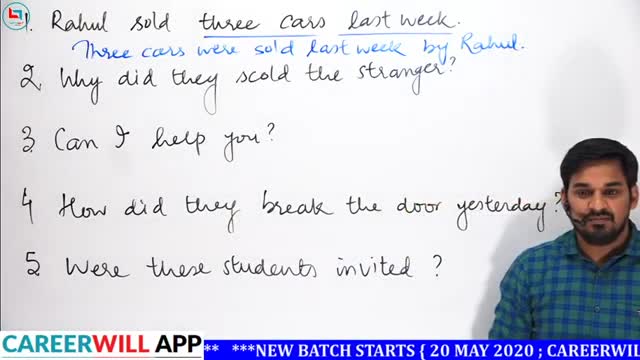 1. Rahul sold three cars last week.
Three cars were sold last week by Rahul.
2. Why did they scold the stranger?
3. Can I help you?
4 How did they break the door yesterday?
5. Were these students invited ?
CAREERWILL APP ** ***NEW BATCH STARTS { 20 MAY 2020 ; CAREERWIL